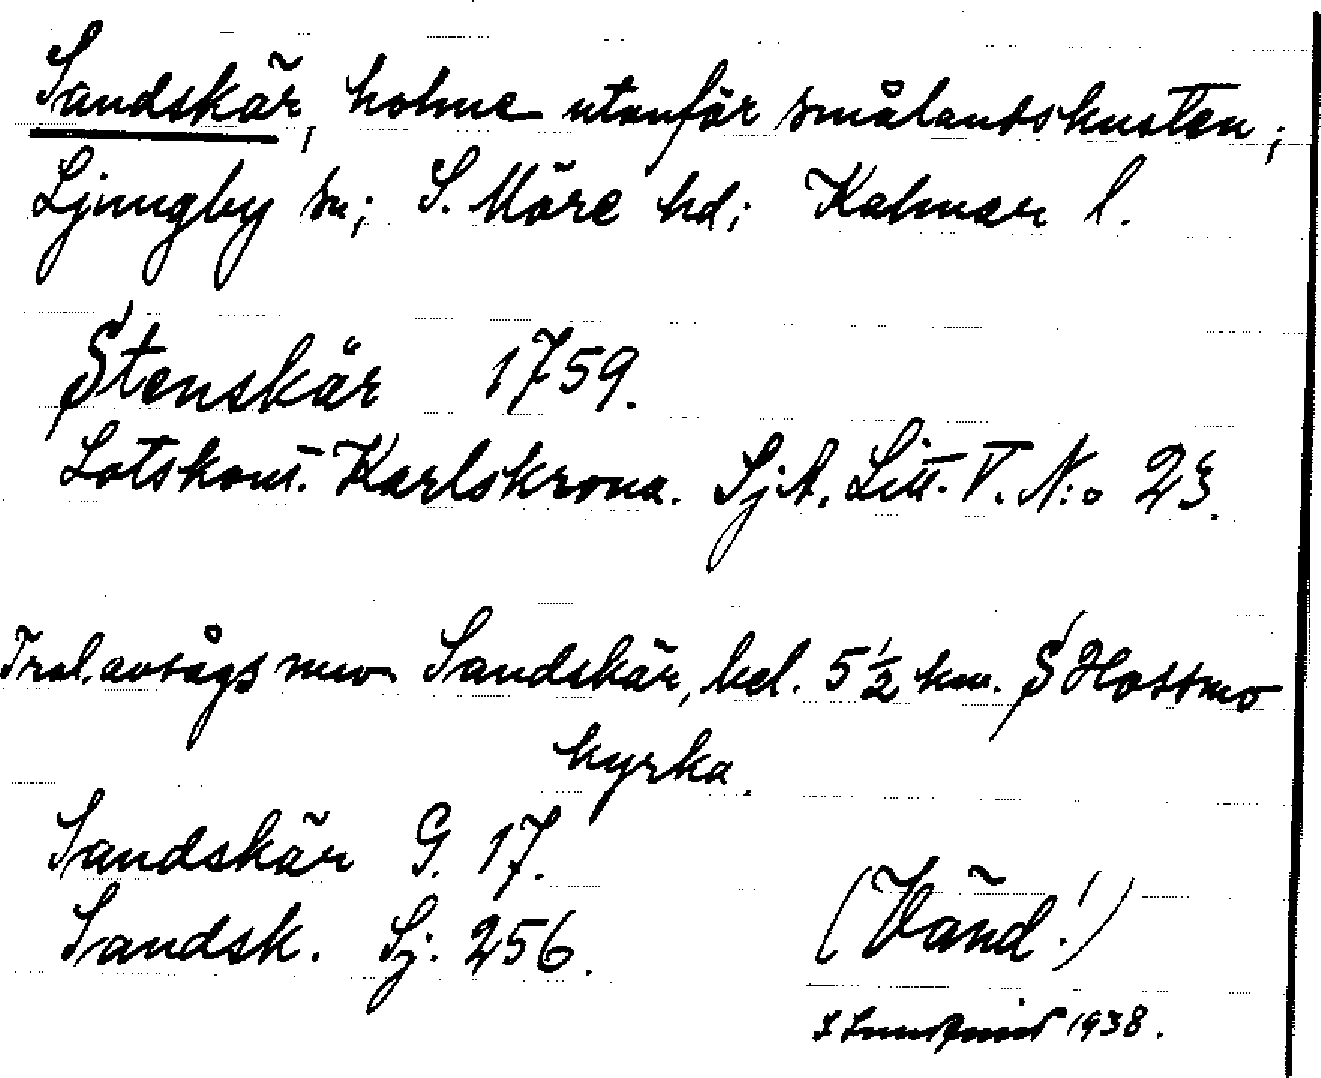 Sandskär, holme utanför smålandskusten;
Ljungby sn; S. Möre hd; Kalmar l.
Stenskär 1759.
Lotskont. Karlskrona. SjA. Litt. V. N:o 23.
Trol. avsågs nuv. Sandskär, bel. 5 1/2 km. S Hossmo
kyrka.
Sandskär G. 17.
Sandsk. Sj. 256.
(Vänd!)
1938.